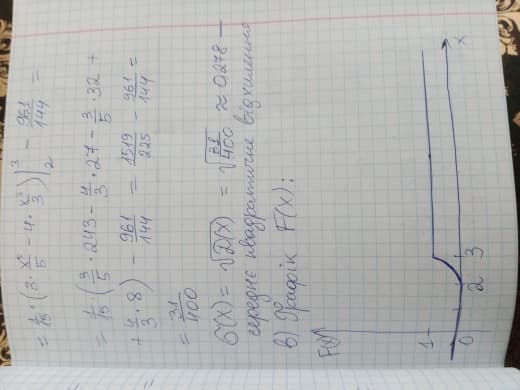 = 1/15 · (3 · x⁵/5 - 4 · x³/3) |₂³ - 961/144 =
= 1/15 · (3/5 · 243 - 4/3 · 27 - 3/5 · 32 +
+ 4/3 · 8) - 961/144 = 1519/225 - 961/144 =
= 31/400
σ(X) = √D(X) = √31/400 ≈ 0,278 —
середнє квадратичне відхилення
в) Графік F(x):
F(x)
1
0 2 3 x